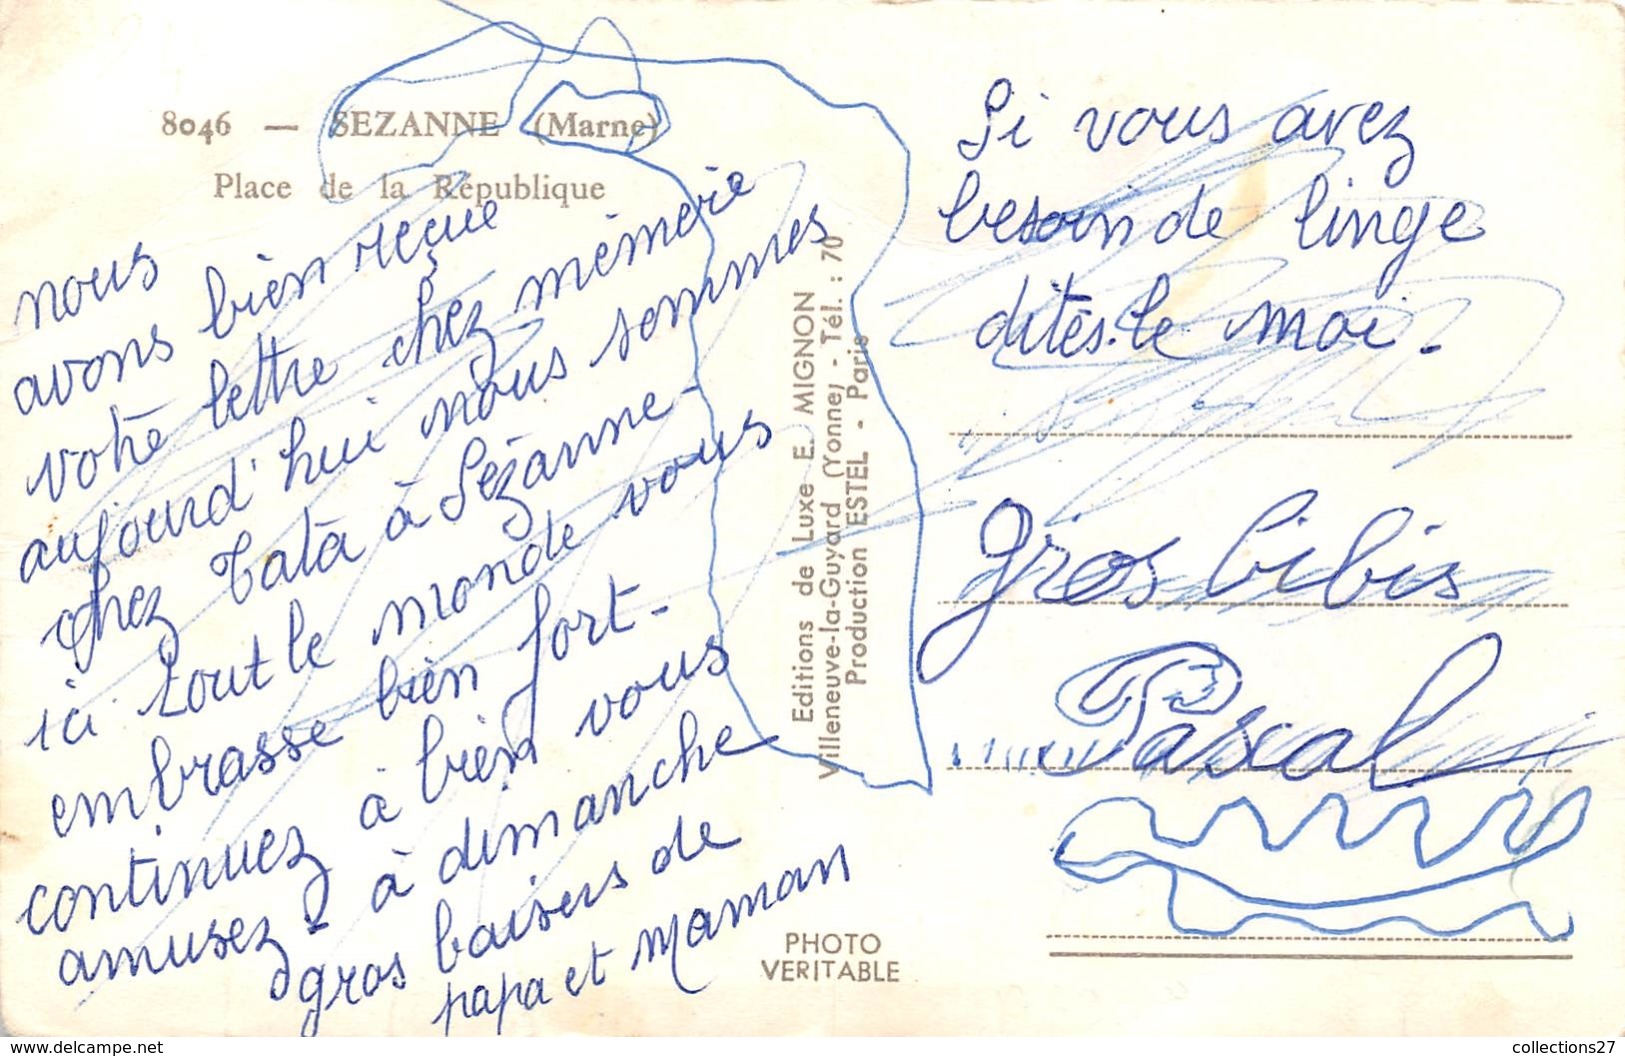 8046 — SEZANNE (Marne)
Place de la République
nous
avons bien reçue
votre lettre chez mémère
aujourd'hui nous sommes
chez Tata à Sézanne-
ici tout le monde vous
embrasse bien fort-
continuez à bien vous
amusez- à dimanche
gros baisers de
papa et Maman
Editions de Luxe E. MIGNON
Villeneuve-la-Guyard (Yonne) - Tél. : 70
Production ESTEL - Paris
PHOTO
VERITABLE
Si vous avez
besoin de linge
dites-le moi.
gros bibis
Pascal
www.delcampe.net
collections27